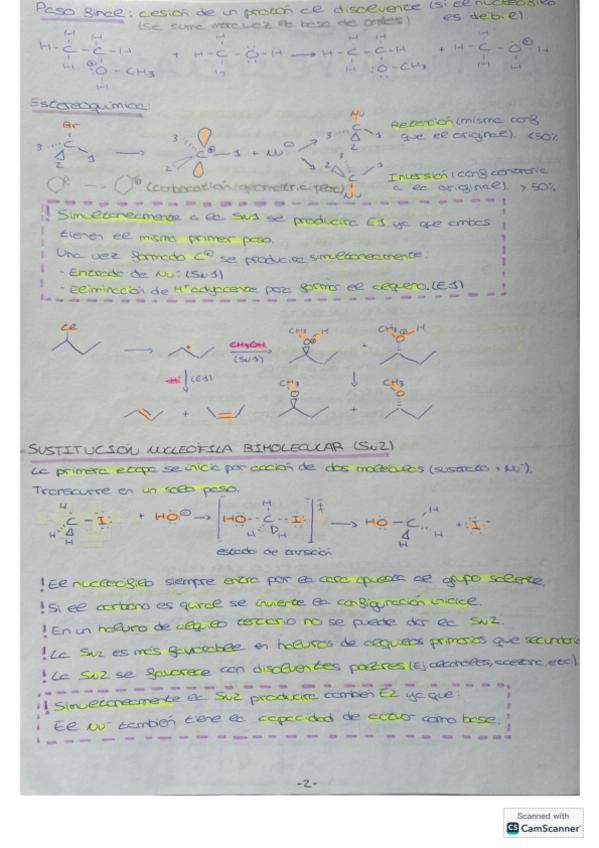 Paso final: cesión de un protón al disolvente (si el nucleófilo
(se suma marcvez es baso de antes) es débil).
Estereoquímica:
Retención (misma conf
que el original). <50%
Inversión (conf contraria
a la original) >50%
(carbocatión geometría plana)
Simultáneamente a la SN1 se producirá E1, ya que ambas
tienen el mismo primer paso.
Una vez formado C⊕ se producirá simultáneamente:
- Entrada de Nu: (SN1)
- Eliminación de H⁺ adyacente para formar el alqueno. (E1)
CH₃OH
(SN1)
-H⁺ (E1)
SUSTITUCIÓN NUCLEÓFILA BIMOLECULAR (SN2)
La primera etapa se inicia por acción de dos moléculas (sustrato + Nu⁻).
Transcurre en un solo paso.
estado de transición
! El nucleófilo siempre entra por la cara opuesta al grupo saliente
! Si el carbono es quiral se invierte la configuración inicial.
! En un haluro de alquilo terciario no se puede dar la SN2.
! La SN2 es más favorable en haluros de alquilos primarios que secundario
! La SN2 se favorece con disolventes polares (Ej alcoholes, acetona, etc.)
! Simultáneamente la SN2 producirá también E2 ya que:
El Nu⁻ también tiene la capacidad de actuar como base.
-2-
Scanned with
CS CamScanner